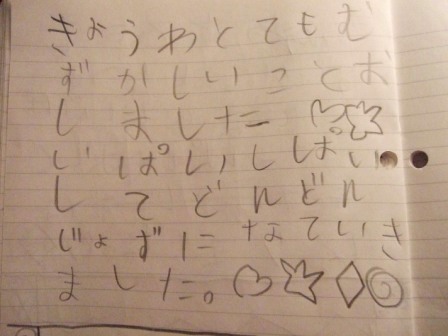 きょうわとてもむ
ずかしいことお
しました
いぱいしぱい
してどんどん
じょずになていき
ました。